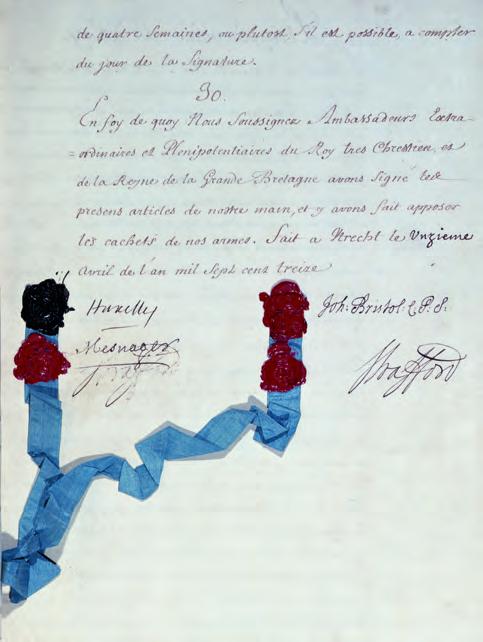 de quatre semaines, ou plutost, s'il est possible, a compter
du jour de la signature.
30.
En foy de quoy Nous soussignez Ambassadeurs Extra-
=ordinaires et Plenipotentiaires du Roy tres Chrestien, et
de la Reyne de la Grande Bretagne avons signé les
presens articles de nostre main, et y avons fait apposer
les cachets de nos armes. Fait a Utrecht le Unzieme
avril de l'an mil sept cent treize
Huxelles
Joh. Bristol C.P.S.
Mesnager
Strafford